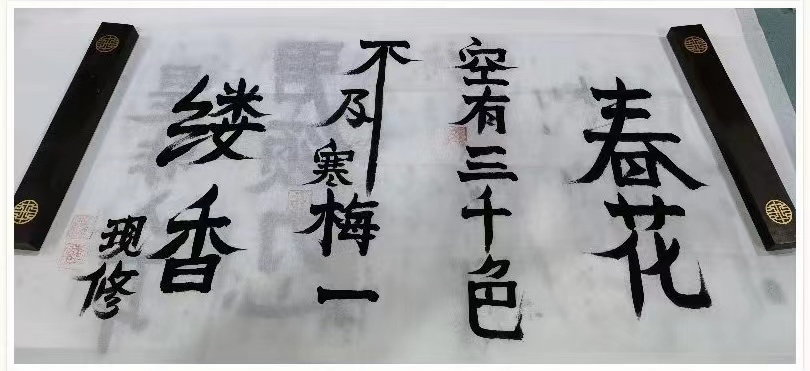 春花
空有三千色
不及寒梅一
缕香
现修